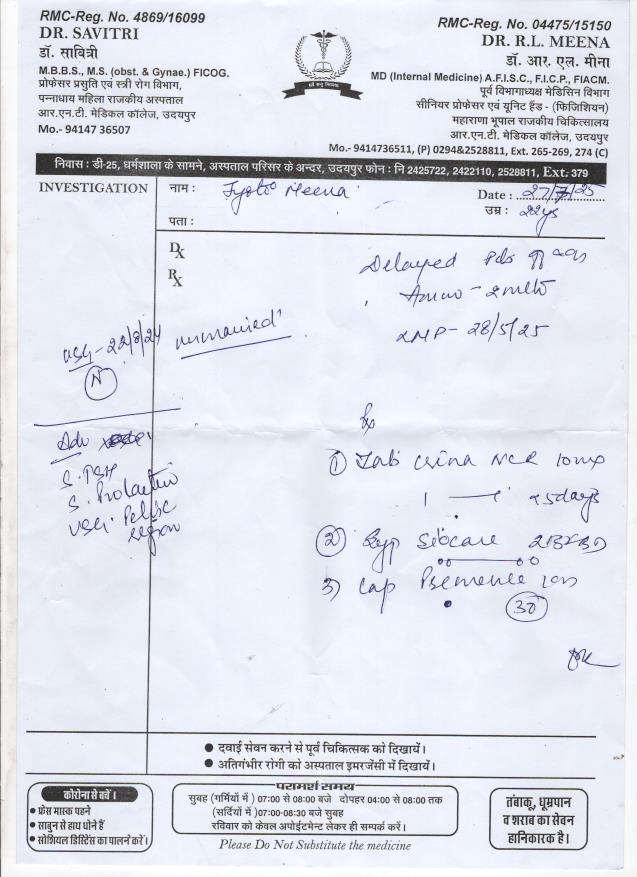 RMC-Reg. No. 4869/16099
DR. SAVITRI
डॉ. सावित्री
M.B.B.S., M.S. (obst. & Gynae.) FICOG.
प्रोफेसर प्रसुति एवं स्त्री रोग विभाग,
पन्नाधाय महिला राजकीय अस्पताल
आर.एन.टी. मेडिकल कॉलेज, उदयपुर
Mo.- 94147 36507
RMC-Reg. No. 04475/15150
DR. R.L. MEENA
डॉ. आर. एल. मीना
MD (Internal Medicine) A.F.I.S.C., F.I.C.P., FIACM.
पूर्व विभागाध्यक्ष मेडिसिन विभाग
सीनियर प्रोफेसर एवं यूनिट हैंड - (फिजिशियन)
महाराणा भूपाल राजकीय चिकित्सालय
आर.एन.टी. मेडिकल कॉलेज, उदयपुर
Mo.- 9414736511, (P) 0294&2528811, Ext. 265-269, 274 (C)
निवास : डी-25, धर्मशाला के सामने, अस्पताल परिसर के अन्दर, उदयपुर फोन : नि 2425722, 2422110, 2528811, Ext. 379
INVESTIGATION
नाम : Meena
Date : 27/7/25
पता :
उम्र : 22ys
Dx
Rx
Delayed
LMP- 28/5/25
USG-22/8/24 unmarried
N
Rx
Adv
S. Prolactin
USG. Pelvic
region
1) Tab
x5days
2)
3) Cap
30
● दवाई सेवन करने से पूर्व चिकित्सक को दिखायें।
● अतिगंभीर रोगी को अस्पताल इमरजेंसी में दिखायें।
कोरोना से बचें।
● फ्रेस मास्क पहने
● साबुन से हाथ धोने हैं
● सोशियल डिस्टिेंस का पालने करें।
परामर्श समय
सुबह (गर्मियों में) 07:00 से 08:00 बजे दोपहर 04:00 से 08:00 तक
(सर्दियों में) 07:00-08:30 बजे सुबह
रविवार को केवल अपोईंटमेन्ट लेकर ही सम्पर्क करें।
Please Do Not Substitute the medicine
तंबाकू, धूम्रपान
व शराब का सेवन
हानिकारक है।